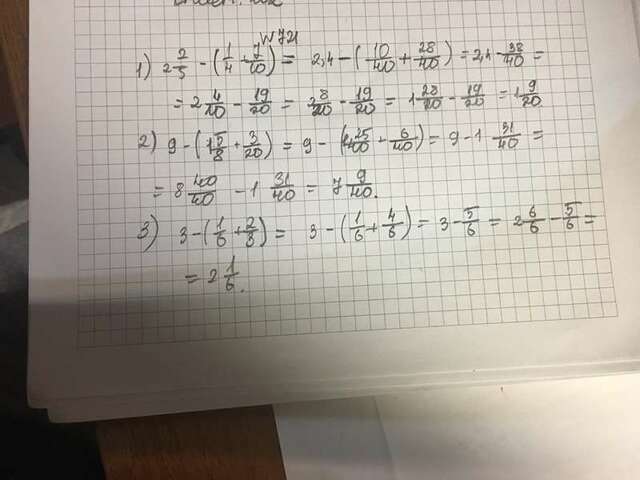 1) 2 2/5 - (1/4 + 7/10) = 2,4 - (10/40 + 28/40) = 2,4 - 38/40 =
= 2 4/10 - 19/20 = 2 8/20 - 19/20 = 1 28/20 - 19/20 = 1 9/20
2) 9 - (1 5/8 + 3/20) = 9 - (1 25/40 + 6/40) = 9 - 1 31/40 =
= 8 40/40 - 1 31/40 = 7 9/40.
3) 3 - (1/6 + 2/3) = 3 - (1/6 + 4/6) = 3 - 5/6 = 2 6/6 - 5/6 =
= 2 1/6.